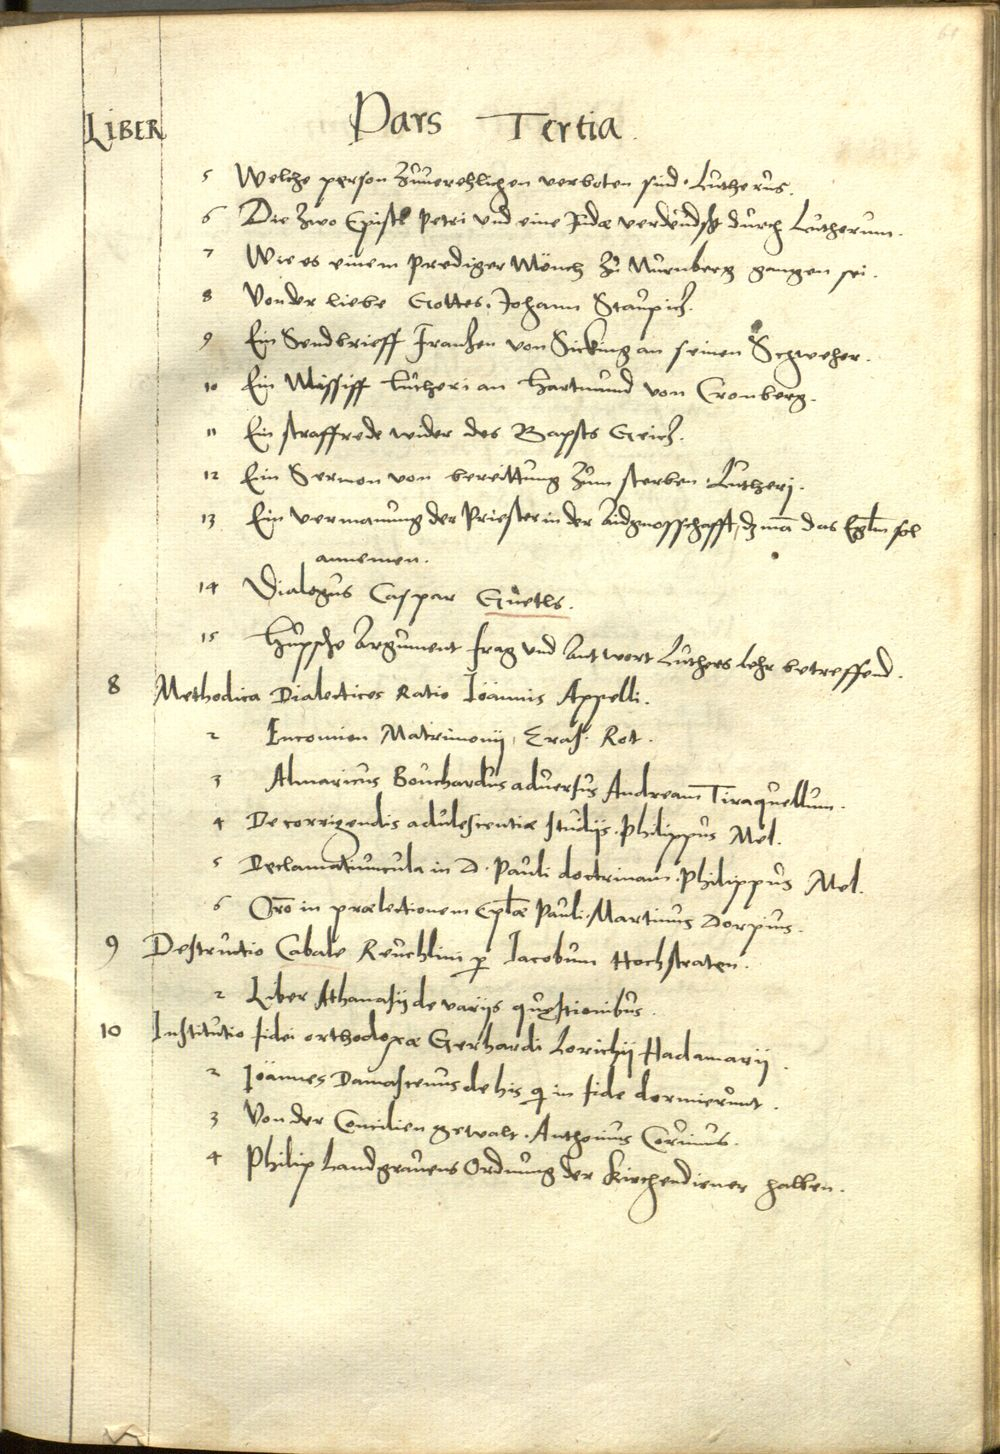 61
LIBER Pars Tertia
5 Welche person zuuerehlichen verboten sind. Lutherus.
6 Die zwo Epistel Petri und eine Judæ verdeudscht durch Lutherum.
7 Wie es einem Prediger Mönch zů Nürnberg gangen sei.
8 Von der liebe Gottes. Johann Staupitz.
9 Ein Sendbrieff Frantzen von Sicking an seinen Schweher.
10 Ein Missiff Lutheri an Hartmund von Cronberg.
11 Ein straffrede wider des Bapsts Geitz.
12 Ein Sermon von bereittung zům sterben. Lutherj.
13 Ein vermanung der Priester in der Aidgnosschafft, dz mā das Eglm sol
annemen.
14 Dialogus Caspar Güetls.
15 Hüpsche Argument frag und Antwort Luthers lehr betreffend.
8 Methodica Dialectices Ratio Ioannis Appelli.
2 Encomien Matrimonij, Eras. Rot.
3 Almaricus Bouchardus aduersus Andream Tiraquellum.
4 De corrigendis adulescentiæ studijs. Philippus Mel.
5 Declamatiuncula in D. Pauli doctrinam. Philippus Mel.
6 Orō in prælectionem Eplæ Pauli. Martinus Dorpius.
9 Destructio Cabale Reuchlini ꝑ Iacobum Hochstraten.
2 Liber Athanasij de varijs quæstionibus.
10 Institutio fidei orthodoxæ Gerhardi Lorichij Hadamarij.
2 Ioannes Damascenus de his q in fide dormierunt.
3 Von der Concilien gewalt. Anthonius Coruinus.
4 Philip Landgrauens Ordnung der Kirchendiener halben.